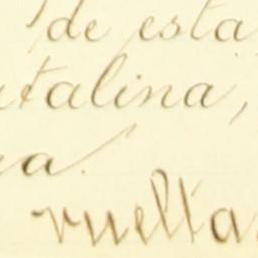 de esta
talina,
a.
vuelta